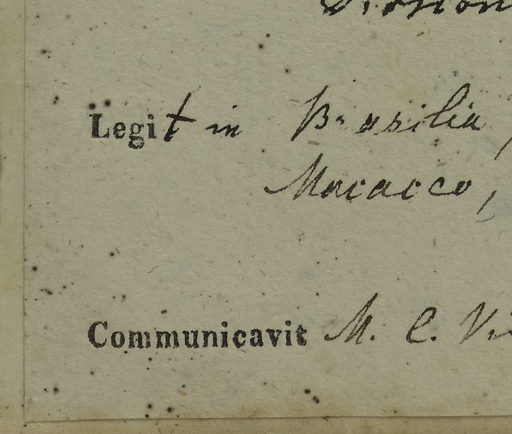 Legit in Brasilia,
Macacco,
Communicavit M. C.